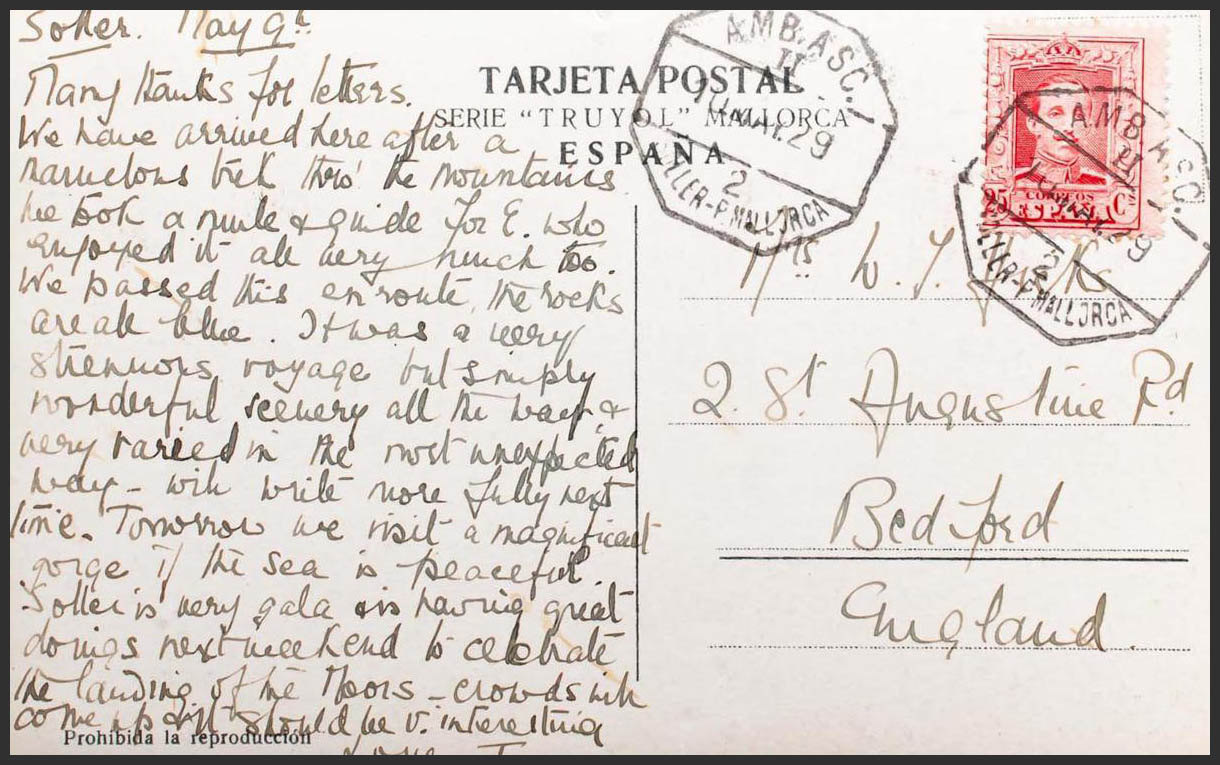 Soller. May 9th
Many thanks for letters.
We have arrived here after a
marvelous trek thro' the mountains
We took a mule & guide for E. who
enjoyed it all very much too.
We passed this en route, the rocks
are all blue. It was a very
strenuous voyage but simply
wonderful scenery all the way &
very varied in the most unexpected
way - will write more fully next
time. Tomorrow we visit a magnificent
gorge if the sea is peaceful.
Soller is very gala & is having great
doings next weekend to celebrate
the landing of the Moors - crowds will
come up & it should be v. interesting
Love
TARJETA POSTAL
SERIE "TRUYOL" MALLORCA
ESPAÑA
Prohibida la reproducción
AMB. ASC.
II
10 MAY. 29
2
SOLLER-P. MALLORCA
CORREOS
25 ESPAÑA Cs
AMB. ASC.
II
10 MAY. 29
2
SOLLER-P. MALLORCA
Mrs W. J.
2. St Augustine Rd
Bedford
England